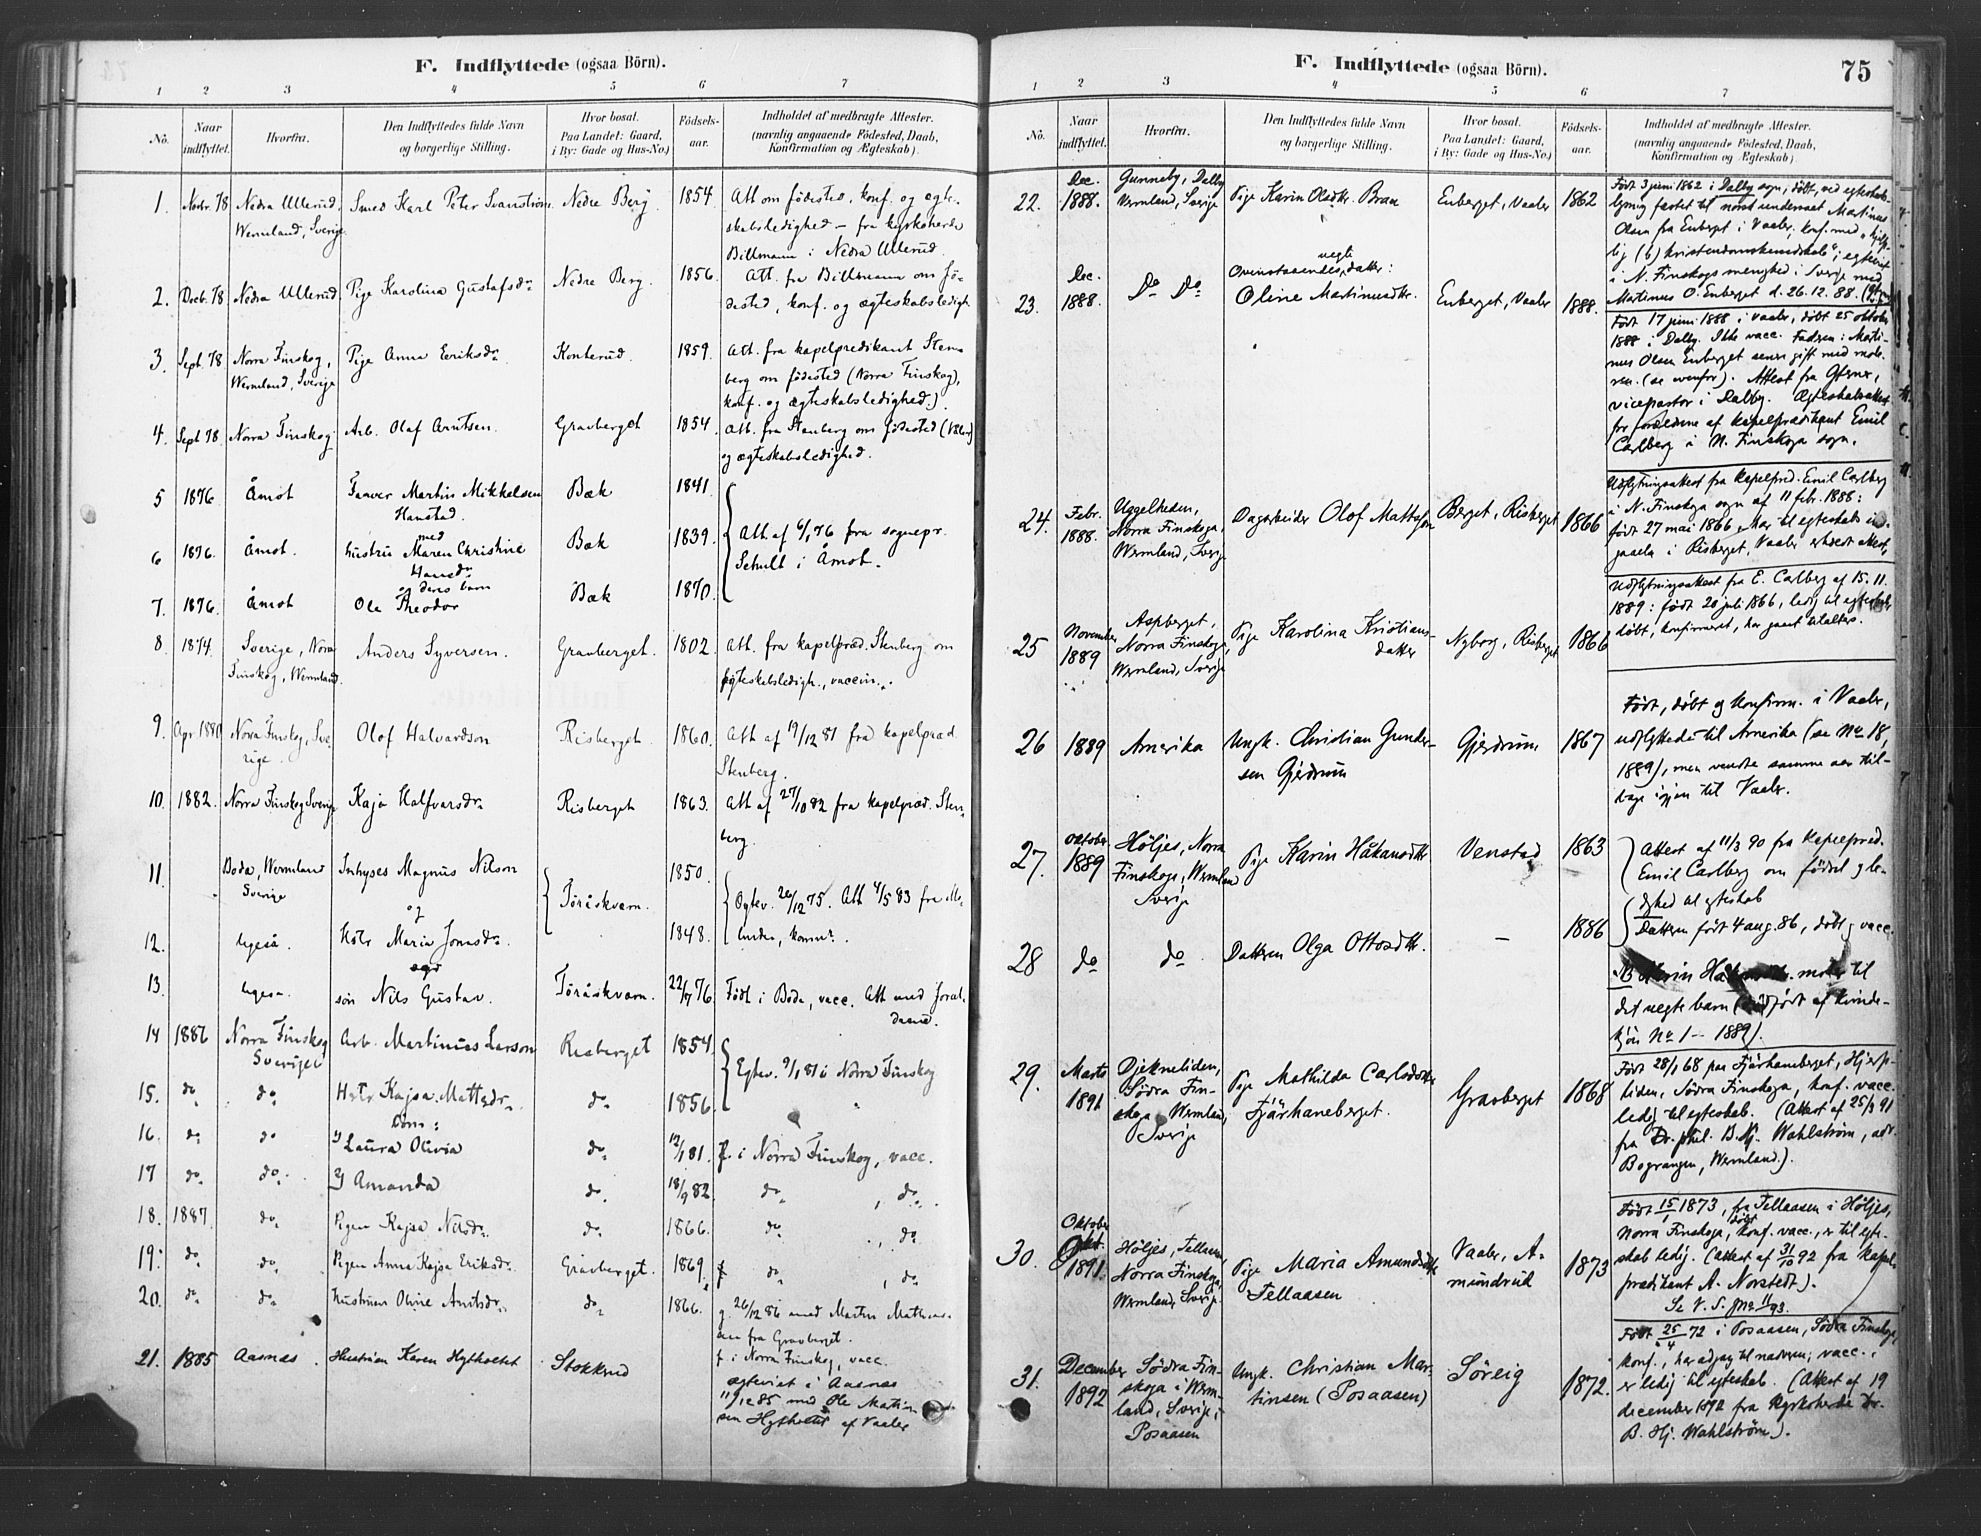 F. Indflyttede (ogsaa Börn).
1 2 3 4 5 6 7
No. Naar indflyttet. Hvorfra. Den Indflyttedes fulde Navn og borgerlige Stilling. Hvor bosat. Paa Landet: Gaard, i By: Gade og Hus-No.) Födsels-aar. Indholdet af medbragte Attester. (navnlig angaaende Födested, Daab, Konfirmation og Ægteskab).
1. Novbr. 78 Nedra Ullerud, Smed Karl Peter Svanström Nedre Berg. 1854. Att om födested, konf. og ægte-
Wermland, Sverige skabsledighed – fra kyrkoherde
Billmann i Nedra Ullerud.
2. Decb. 78 Nedra Ullerud. Pige Karolina Gustafsdr. Nedre Berg. 1856. Att. fra Billmann om fö-
dested, konf. og ægteskabsledigh.
3. Sept. 78 Norra Finskog, Pige Anna Eriksdr. 1859. Att. fra kapelpredikant Sten-
Wermland, Sverige berg om födested (Norra Finskog),
konf. og ægteskabsledighed.).
4. Sept. 78 Norra Finskog. Arb. Olaf Arntsen. Gravberget 1854. Att. fra Stenberg om födested (Våler)
og ægteskabsledighed.
5 1876 Åmot Martin Mikkelsen Bæk 1841.
Hanstad.
med
6 1876. Åmot. hustru Maren Christine Bæk 1839. Att. af 6/1 76 fra sognepr.
Schult i Åmot.
deres barn
7. 1876. Åmot Ole Theodor Bæk 1870.
8. 1874. Sverige, Norra Anders Syversen. Gravberget. 1802. Att. fra kapelpræd. Stenberg om
Finskog, Wermland. ægteskabsledigh., vaccin.
9. Apr. 1880 Norra Finskog, Sve- Olof Halvardson Risberget 1860. Att af 19/12 81 fra kapelpræd
rige. Stenberg.
10. 1882. Norra Finskog Sverige Kaja Halfvarsdr. Risberget 1863. Att af 27/10 82 fra kapelpræd. Sten-
berg.
11. Boda, Wermland Inhyses Magnus Nilson 1850.
Sverige og Föråskvarn. Ægtev. 26/12 75. Att 4/5 83 fra
12. ligeså. Hstr Maria Jonasdr. 1848.
13. ligesa. sön Nils Gustav. Föråskvarn. 22/7 76. Födt i Boda, vacc. Att med
14 1886 Norra Finskog Arb. Martinius Larson Risberget 1854
Sverige Egtev. 9/1 81 i Norra Finskog
15. do do. Hstr Kajsa Mattsdr. do. 1856.
Börn:
16. do. do 1/ Laura Olivia do. 12/1 81. f. i Norra Finskog, vacc.
17 do. do. 2/ Amanda do. 18/9 82. do. , do.
18. 1887. do. Pigen Kajsa Nilsdr. do. 1866. do. , do.
19. do. do. Pigen Anna Kajsa Eriksdr. Gravberget. 1869. f do. , do.
20. do. do. hustruen Oline Arntsdr. do. 1866. g. 26/12 86 med Martin Mathias-
sen fra Gravberget.
f. i Norra Finskog, vacc.
21. 1885 Aasnæs. Hustruen Karen Hythoelet Stokkrud ægteviet i Aasnæs
11/12 85 med Ole Martin-
sen Hytholtet af Vaaler
F. Indflyttede (ogsaa Börn). 75
1 2 3 4 5 6 7
No. Naar indflyttet. Hvorfra. Den Indflyttedes fulde Navn og borgerlige Stilling. Hvor bosat. Paa Landet: Gaard, i By: Gade og Hus-No.) Födsels-aar. Indholdet af medbragte Attester. (navnlig angaaende Födested, Daab, Konfirmation og Ægteskab)
22. Dec. 1888. Gunneby, Dalby Pige Karin Olsdtr. Enberget, Vaaler 1862 Födt 3 juni 1862 i Dalby sogn, döbt, ved egteskabs-
Wermland, Sverige lysning fæstet til norsk undersaat Martinus
Olsen fra Enberget i Vaaler, konf. med
(b) kristendomskundskab;
i N. Finskogs menighed i Sverige med
Martinus O. Enberget d. 26.12.88.
23. Dec. 1888. Do Do Ovenstaaendes uegte datter: Enberget, Vaaler 1888. Födt 17 juni 1888 i Vaaler, döbt 25 oktober
Oline Martinusdtr. 1888 i Dalby. Ikke vacc. Faderen: Marti-
nus Olsen Enberget senere gift med mode-
ren. (se ovenfor). Attest fra
vicepastor i Dalby. Egteskabsattest
for forældrene af kapelprædikant Emil
Carlberg i N. Finskoga sogn.
24. Febr. 1888. Uggelheden, Dagarbeider Olof Mattsson Berget, Risberget 1866 Udflytningsattest fra kapelpred. Emil Carlberg
Norra Finskoga, i N. Finskoga sogn af 11 febr. 1888:
Wermland, Sverige födt 27 mai 1866. Har til egteskabs in-
gaaelse i Risberget, Vaaler erholdt attest,
25 November 1889 Aspberget, Pige Karolina Kristians- Nyborg, Risberget 1866 Udflytningsattest fra E. Carlberg af 15.11.
Norra Finskoga, datter 1889: födt 20 juli 1866, ledig til egteskab
Wermland, Sverige döbt, konfirmeret, har gaaet til alters.
26 1889 Amerika Ungk. Christian Gunder- Gjerdrum 1867 Födt, döbt og konfirm. i Vaaler,
sen Gjerdrum udflyttede til Amerika (se No 18,
1889), men vendte samme aar til-
bage igjen til Vaaler.
27. oktober 1889 Höljes, Norra Pige Karin Håkansdtr. Venstad 1863 Attest af 11/3 90 fra kapelpred.
Finskoga, Wermland Emil Carlberg om födsel og le-
Sverige dighed til egteskab
28 do do. Datteren Olga Ottosdtr. – 1886 Datteren födt 4 aug. 86, döbt og vacc.
NB Karin moder til
det uegte barn födt af kvinde-
kjön No 1 – 1889).
29. Marts 1891 Djekneliden, Pige Mathilda Carlsdotter Gravberget 1868 Födt 28/1 68 paa Tjärhaneberget,
Södra Fin- Tjärhaneberget. liden, Södra Finskoga, konf. vacc.
skoga Wermland, ledig til egteskab. (Attest af 25/3 91
Sverige fra Dr. phil. B. Hj. Wahlström, adr.
Bograngen, Wermland.).
30. Oktober 1891. Höljes, Tellaasen, Pige Maria Amundsdtr. Vaaler, A- 1873 Födt 15/1 1873, fra Tellaasen i Höljes,
Norra Finskoga, Tellaasen mundrud Norra Finskoga, döbt konf. vacc., er til egte-
Wermland, Sverige. skab ledig. (Attest af 31/10 92 fra kapel-
predikant A. Norstedt).
Se V. S. 11/93.
31. December 1892 Södra Fin- Ungk. Christian Mar- Söreig 1872. Födt 25/4 72 i Posaasen, Södra Finskoga,
skoga i Werm- tinsen (Posaasen) konf., har adgang til nadveren, vacc.,
land, Sverige, er ledig til egteskab. (Attest af 19
Posaasen december 1892 fra kyrkoherde Dr.
B. Hj. Wahlström).